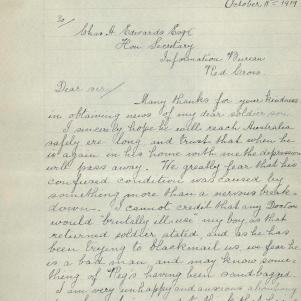 October 11th 1919
To/
Chas. A. Edwards Esq
Hon Secretary
Information Bureau
Red Cross.
Dear sir/
Many thanks for your kindness
in obtaining news of my dear soldier son.
I sincerely hope he will reach Australia
safely ere long, and trust that when he
is again in his home with me the depression
will pass away. We greatly fear that his
confused condition was caused by
something more than a nervous break-
down. I cannot credit that any Doctor
would brutally ill-use my boy, as that
returned soldier stated, and as he has
been trying to blackmail us, we fear he
is a bad man and may know some-
thing of having been sandbagged.
I am very unhappy and anxious about my